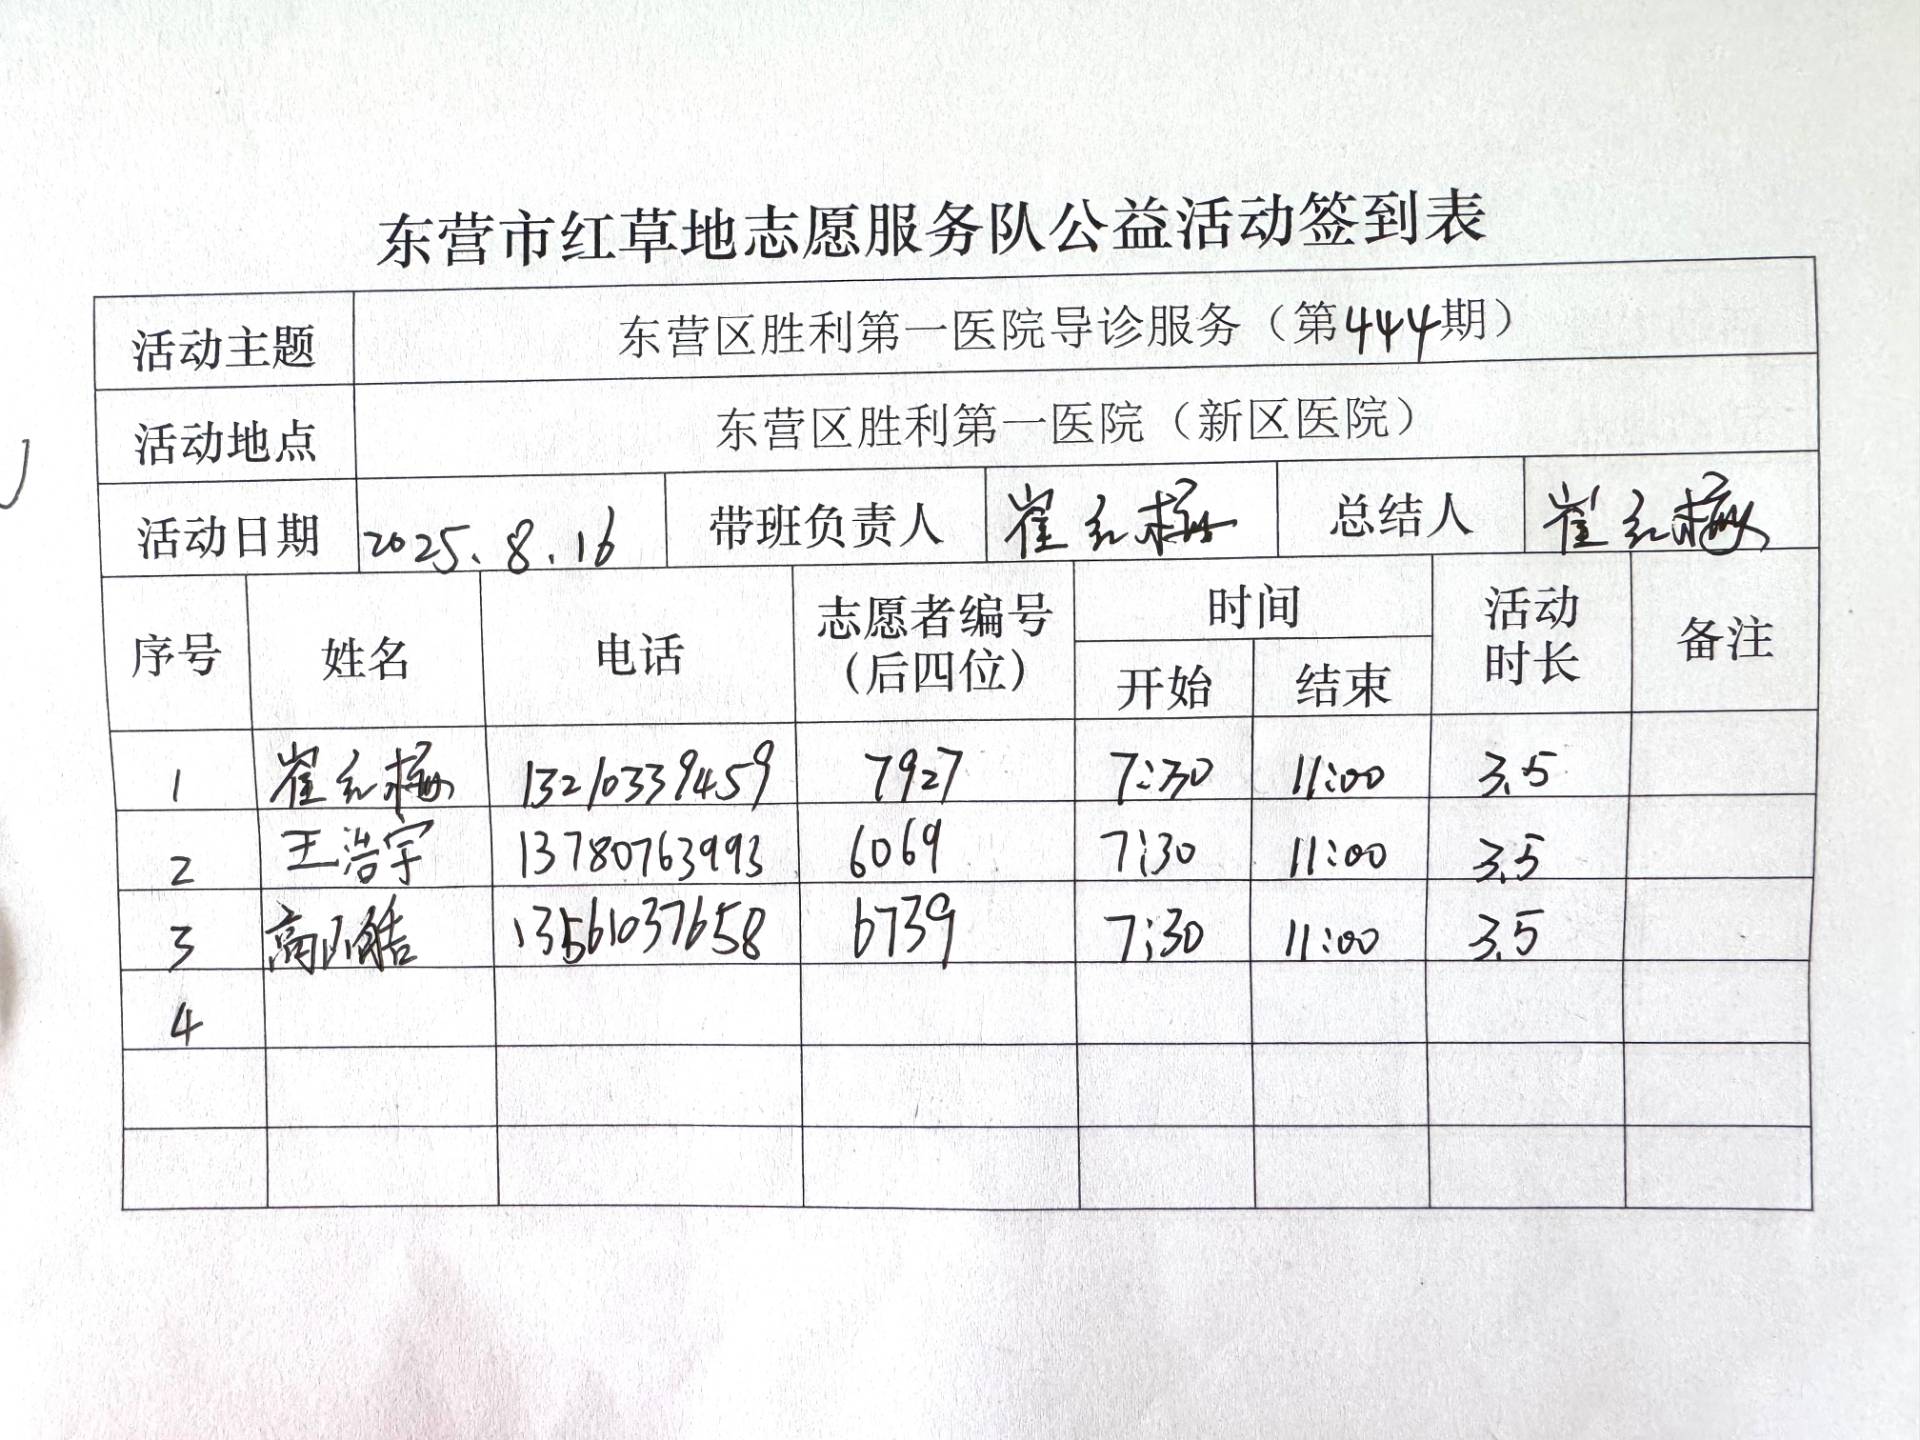 东营市红草地志愿服务队公益活动签到表
活动主题 东营区胜利第一医院导诊服务（第444期）
活动地点 东营区胜利第一医院（新区医院）
活动日期 2025.8.16 带班负责人 崔红梅 总结人 崔红梅
序号 姓名 电话 志愿者编号（后四位） 时间 活动时长 备注
开始 结束
1 崔红梅 13210339459 7927 7:30 11:00 3.5
2 王浩宇 13780763993 6069 7:30 11:00 3.5
3 高 13561037658 6739 7:30 11:00 3.5
4